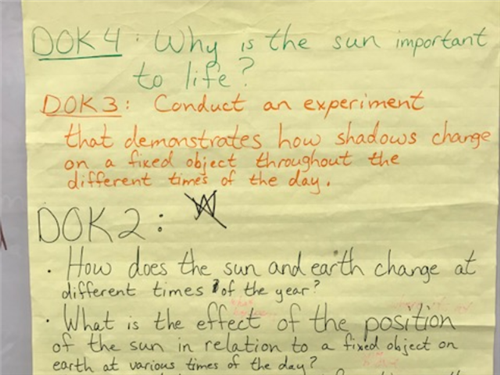 DOK4: Why is the sun important
to life?
DOK3: Conduct an experiment
that demonstrates how shadows change
on a fixed object throughout the
different times of the day.
DOK2:
· How does the sun and earth change at
different times of the year?
· What is the effect of the position
of the sun in relation to a fixed object on
earth at various times of the day?